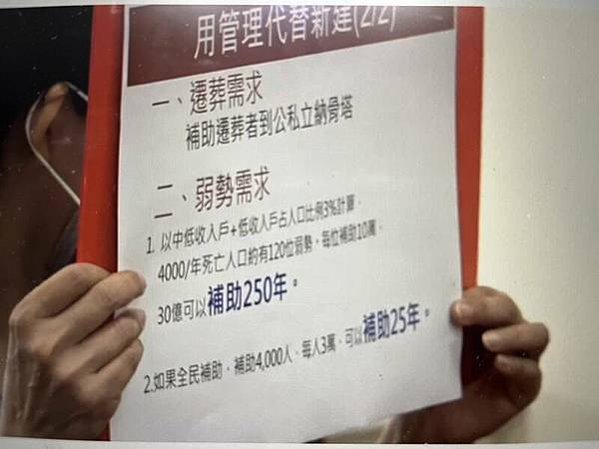 用管理代替新建(2/2)
一、遷葬需求
補助遷葬者到公私立納骨塔
二、弱勢需求
1. 以中低收入戶+低收入戶占人口比例3%計算。
4000/年死亡人口約有120位弱勢，每位補助10萬，
30億可以補助250年。
2.如果全民補助，補助4,000人，每人3萬，可以補助25年。